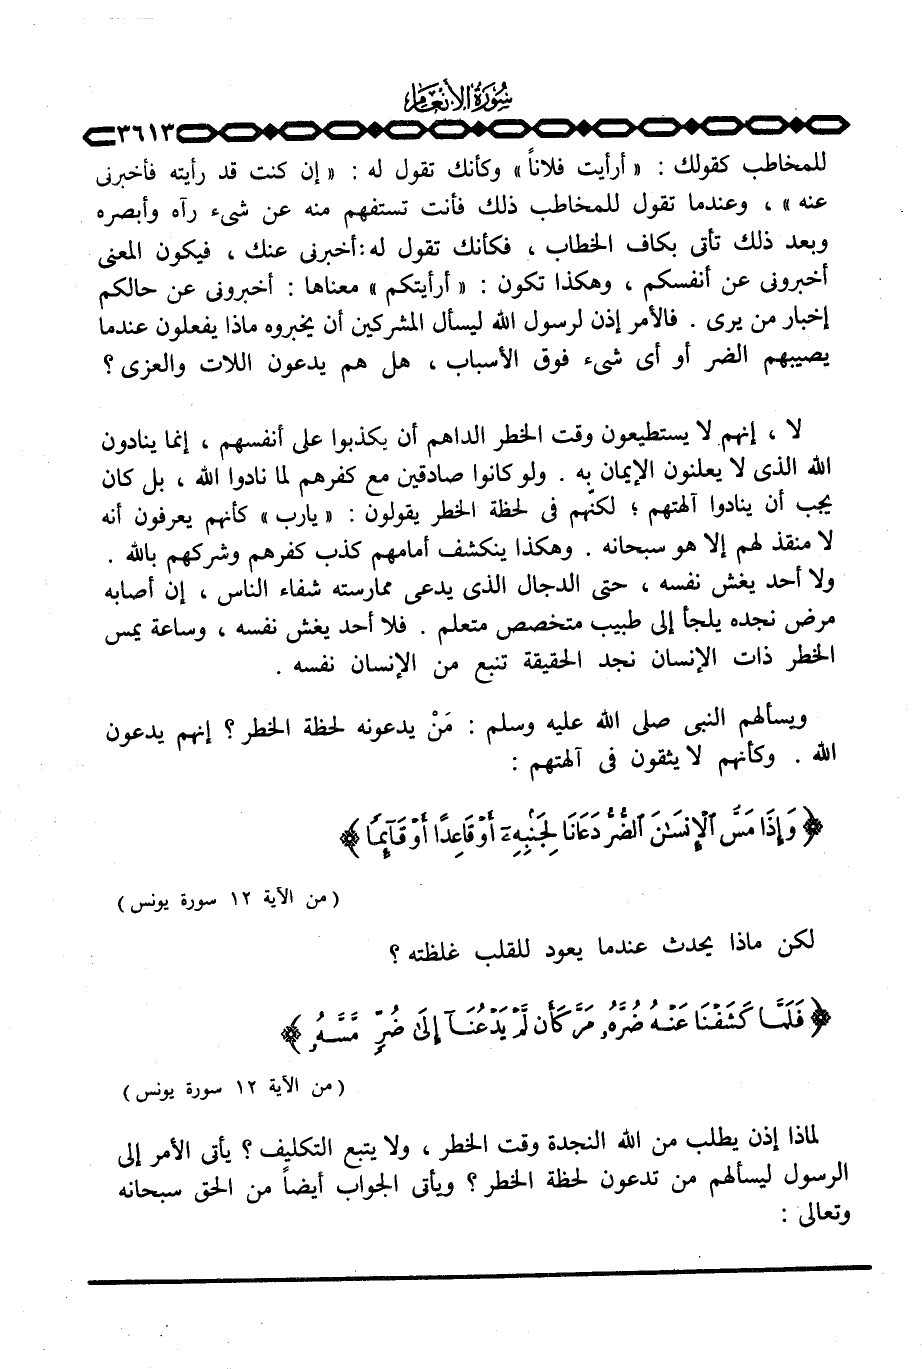 سُورَةُ الأَنْعَام
٣٦١٣
للمخاطب كقولك : « أرأيت فلاناً » وكأنك تقول له : « إن كنت قد رأيته فأخبرنى
عنه » ، وعندما تقول للمخاطب ذلك فأنت تستفهم منه عن شىء رآه وأبصره
وبعد ذلك تأتى بكاف الخطاب ، فكأنك تقول له : أخبرنى عنك ، فيكون المعنى
أخبرونى عن أنفسكم ، وهكذا تكون : « أرأيتكم » معناها : أخبرونى عن حالكم
إخبار من يرى . فالأمر إذن لرسول الله ليسأل المشركين أن يخبروه ماذا يفعلون عندما
يصيبهم الضر أو أى شىء فوق الأسباب ، هل هم يدعون اللات والعزى ؟
لا ، إنهم لا يستطيعون وقت الخطر الداهم أن يكذبوا على أنفسهم ، إنما ينادون
الله الذى لا يعلنون الإيمان به . ولو كانوا صادقين مع كفرهم لما نادوا الله ، بل كان
يجب أن ينادوا آلهتهم ؛ لكنّهم فى لحظة الخطر يقولون : « يارب » كأنهم يعرفون أنه
لا منقذ لهم إلا هو سبحانه . وهكذا ينكشف أمامهم كذب كفرهم وشركهم بالله .
ولا أحد يغش نفسه ، حتى الدجال الذى يدعى ممارسته شفاء الناس ، إن أصابه
مرض نجده يلجأ إلى طبيب متخصص متعلم . فلا أحد يغش نفسه ، وساعة يمس
الخطر ذات الإنسان نجد الحقيقة تنبع من الإنسان نفسه .
ويسألهم النبى صلى الله عليه وسلم : مَنْ يدعونه لحظة الخطر ؟ إنهم يدعون
الله . وكأنهم لا يثقون فى آلهتهم :
﴿ وَإِذَا مَسَّ ٱلْإِنسَٰنَ ٱلضُّرُّ دَعَانَا لِجَنۢبِهِۦٓ أَوْ قَاعِدًا أَوْ قَآئِمًا ﴾
( من الآية ١٢ سورة يونس )
لكن ماذا يحدث عندما يعود للقلب غلظته ؟
﴿ فَلَمَّا كَشَفْنَا عَنْهُ ضُرَّهُۥ مَرَّ كَأَن لَّمْ يَدْعُنَآ إِلَىٰ ضُرٍّ مَّسَّهُۥ ﴾
( من الآية ١٢ سورة يونس )
لماذا إذن يطلب من الله النجدة وقت الخطر ، ولا يتبع التكليف ؟ يأتى الأمر إلى
الرسول ليسألهم من تدعون لحظة الخطر ؟ ويأتى الجواب أيضاً من الحق سبحانه
وتعالى :